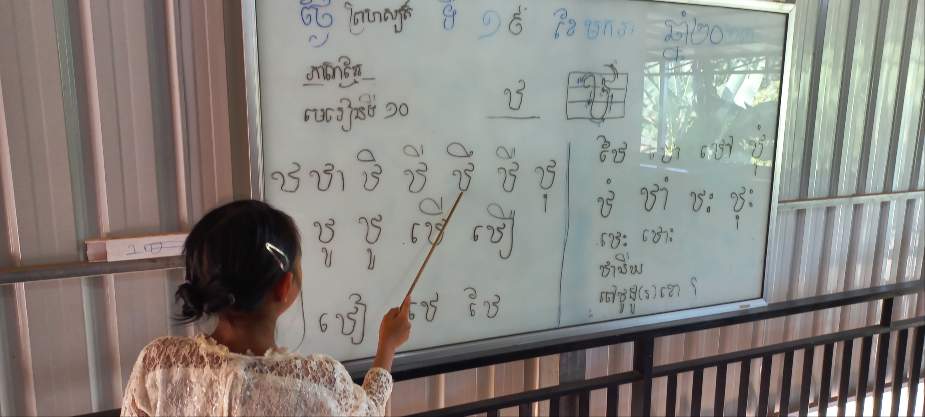 ថ្ងៃ ព្រហស្បតិ៍ ទី ១៩ ខែ មករា ឆ្នាំ២០
ភាសាខ្មែរ
មេរៀនទី ១០
ឋ
ឋ ឋា ឋិ ឋី ឋឹ ឋឺ ឋុ
ឋូ ឋួ ឋើ ឋឿ
ឋៀ ឋេ ឋែ
ឋៃ ឋោ ឋៅ ឋុំ
ឋំ ឋាំ ឋះ ឋុះ
ឋេះ ឋោះ
ឋានីយ